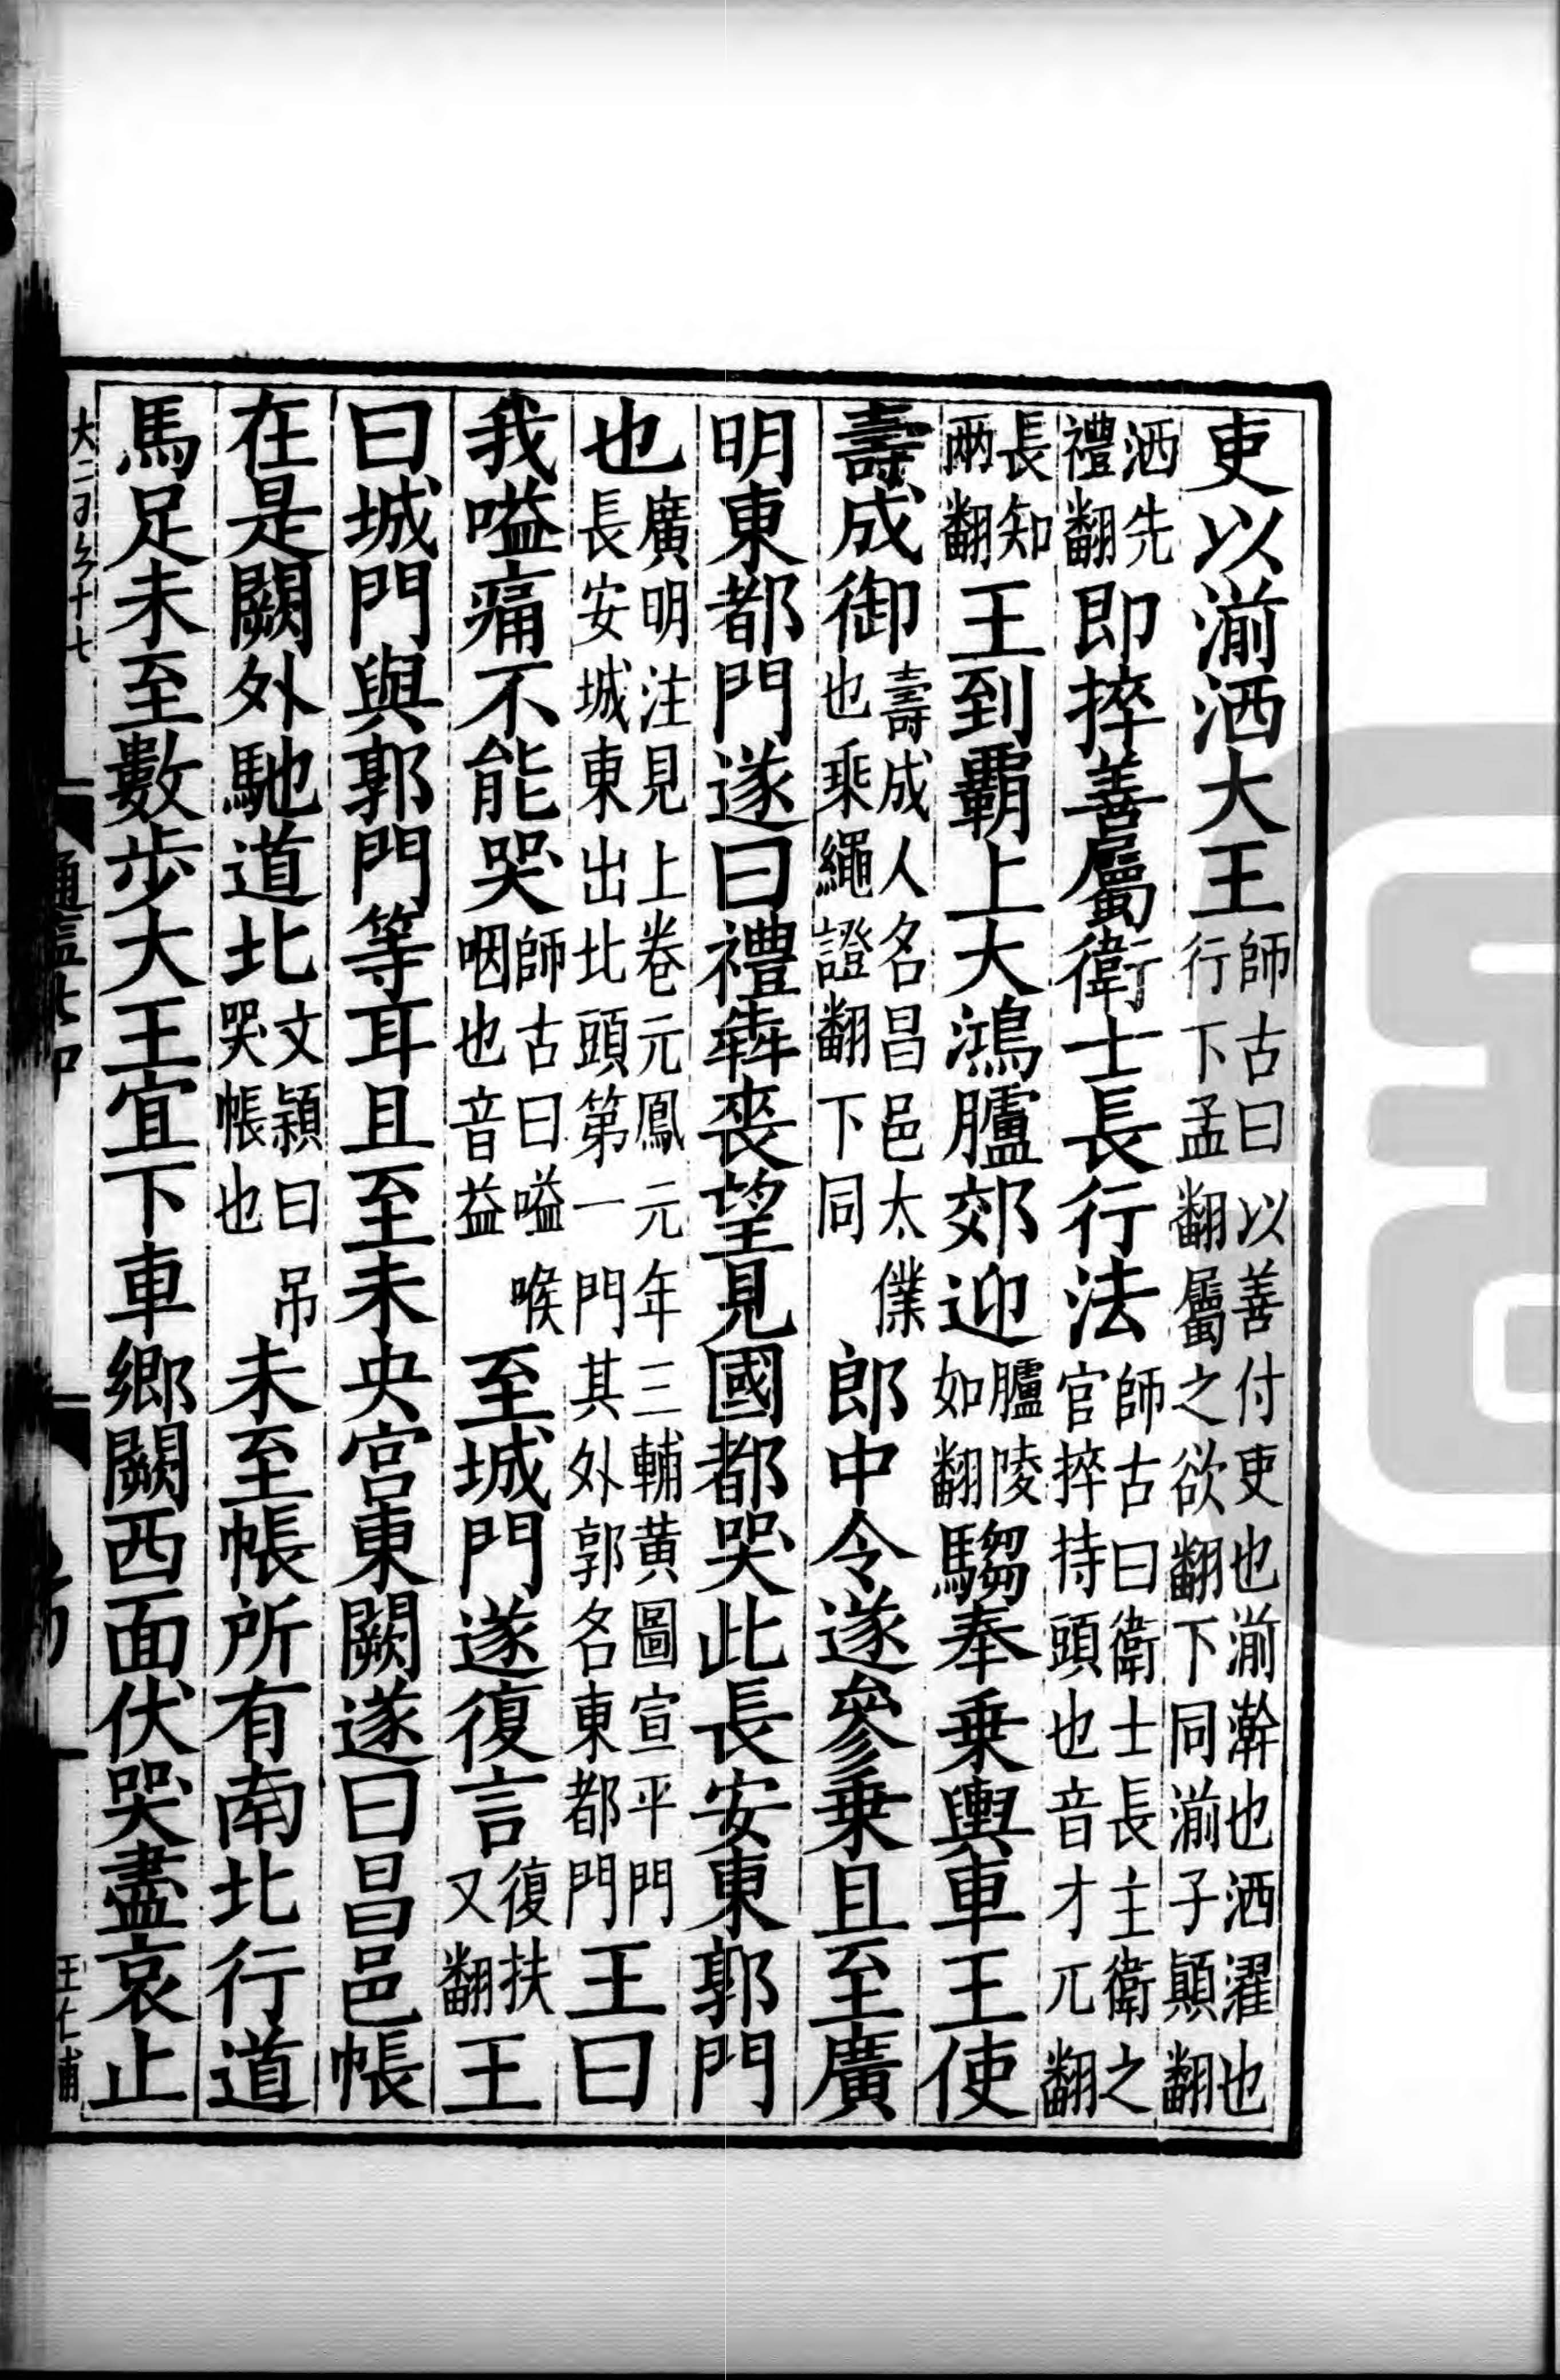 吏以湔洒大王師古曰以善付吏也湔澣也洒濯也行下孟翻屬之欲翻下同湔子顚翻
洒先禮翻即捽善屬衛士長行法師古曰衛士長主衛之官捽持頭也音才兀翻
長知兩翻王到霸上大鴻臚郊迎臚陵如翻騶奉乗輿車王使
壽成御壽成人名昌邑太僕也乘繩證翻下同郎中令遂參乗且至廣
明東都門遂曰禮犇喪望見國都哭此長安東郭門
也廣明注見上卷元鳳元年三輔黄圖宣平門長安城東出北頭第一門其外郭名東都門王曰
我嗌痛不能哭師古曰嗌喉咽也音益至城門遂復言復扶又翻王
曰城門與郭門等耳且至未央宮東闕遂曰昌邑帳
在是闕外馳道北文穎曰弔哭帳也未至帳所有南北行道
馬足未至數步大王宜下車鄉闕西面伏哭盡哀止
王仁甫